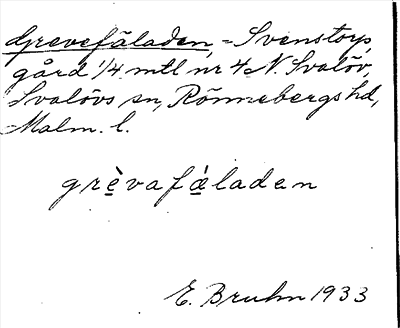 Grevefäladen, = Svenstorp,
gård 1/4 mtl nr 4 N. Svalöv,
Svalövs sn, Rönnebergs hd,
Malm. l.
grèvafáladen
E. Bruhn 1933